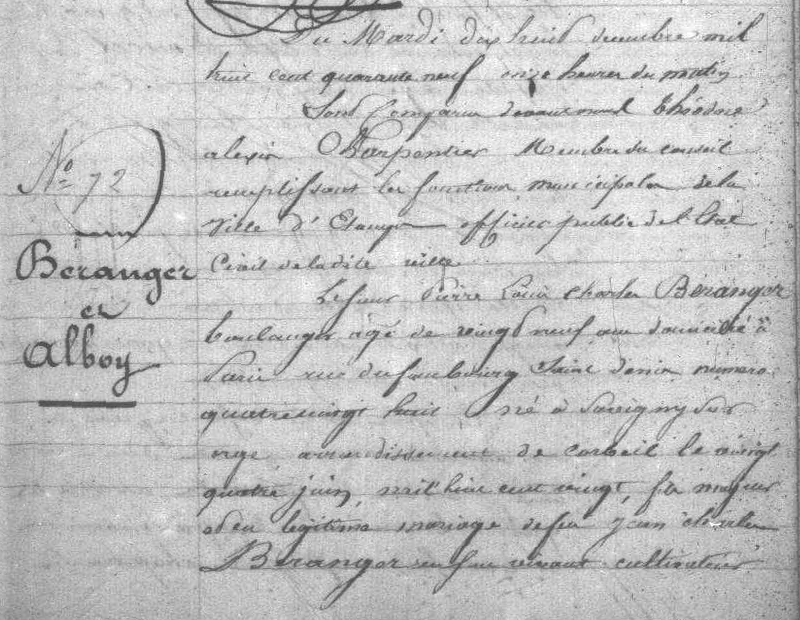 Du Mardi dix huit decembre mil
huit cent quarante neuf onze heures du matin
Sont Comparus devant nous Théodore
alexis Charpentier Membre du conseil
remplissant les fonctions municipales de la
Ville d'Etampes officier public de l'Etat
Civil de la dite ville
No 72
Beranger
et
Alboy
Le sieur Pierre Louis Charles Béranger
boulanger âgé de vingt neuf ans domicilié à
Paris rue du faubourg Saint denis numero
quatrevingt huit né à Savigny Sur
orge arrondissement de corbeil le vingt
quatre juin mil huit cent vingt, fils majeur
et en légitime mariage de feu jean charles
Béranger en son vivant cultivateur